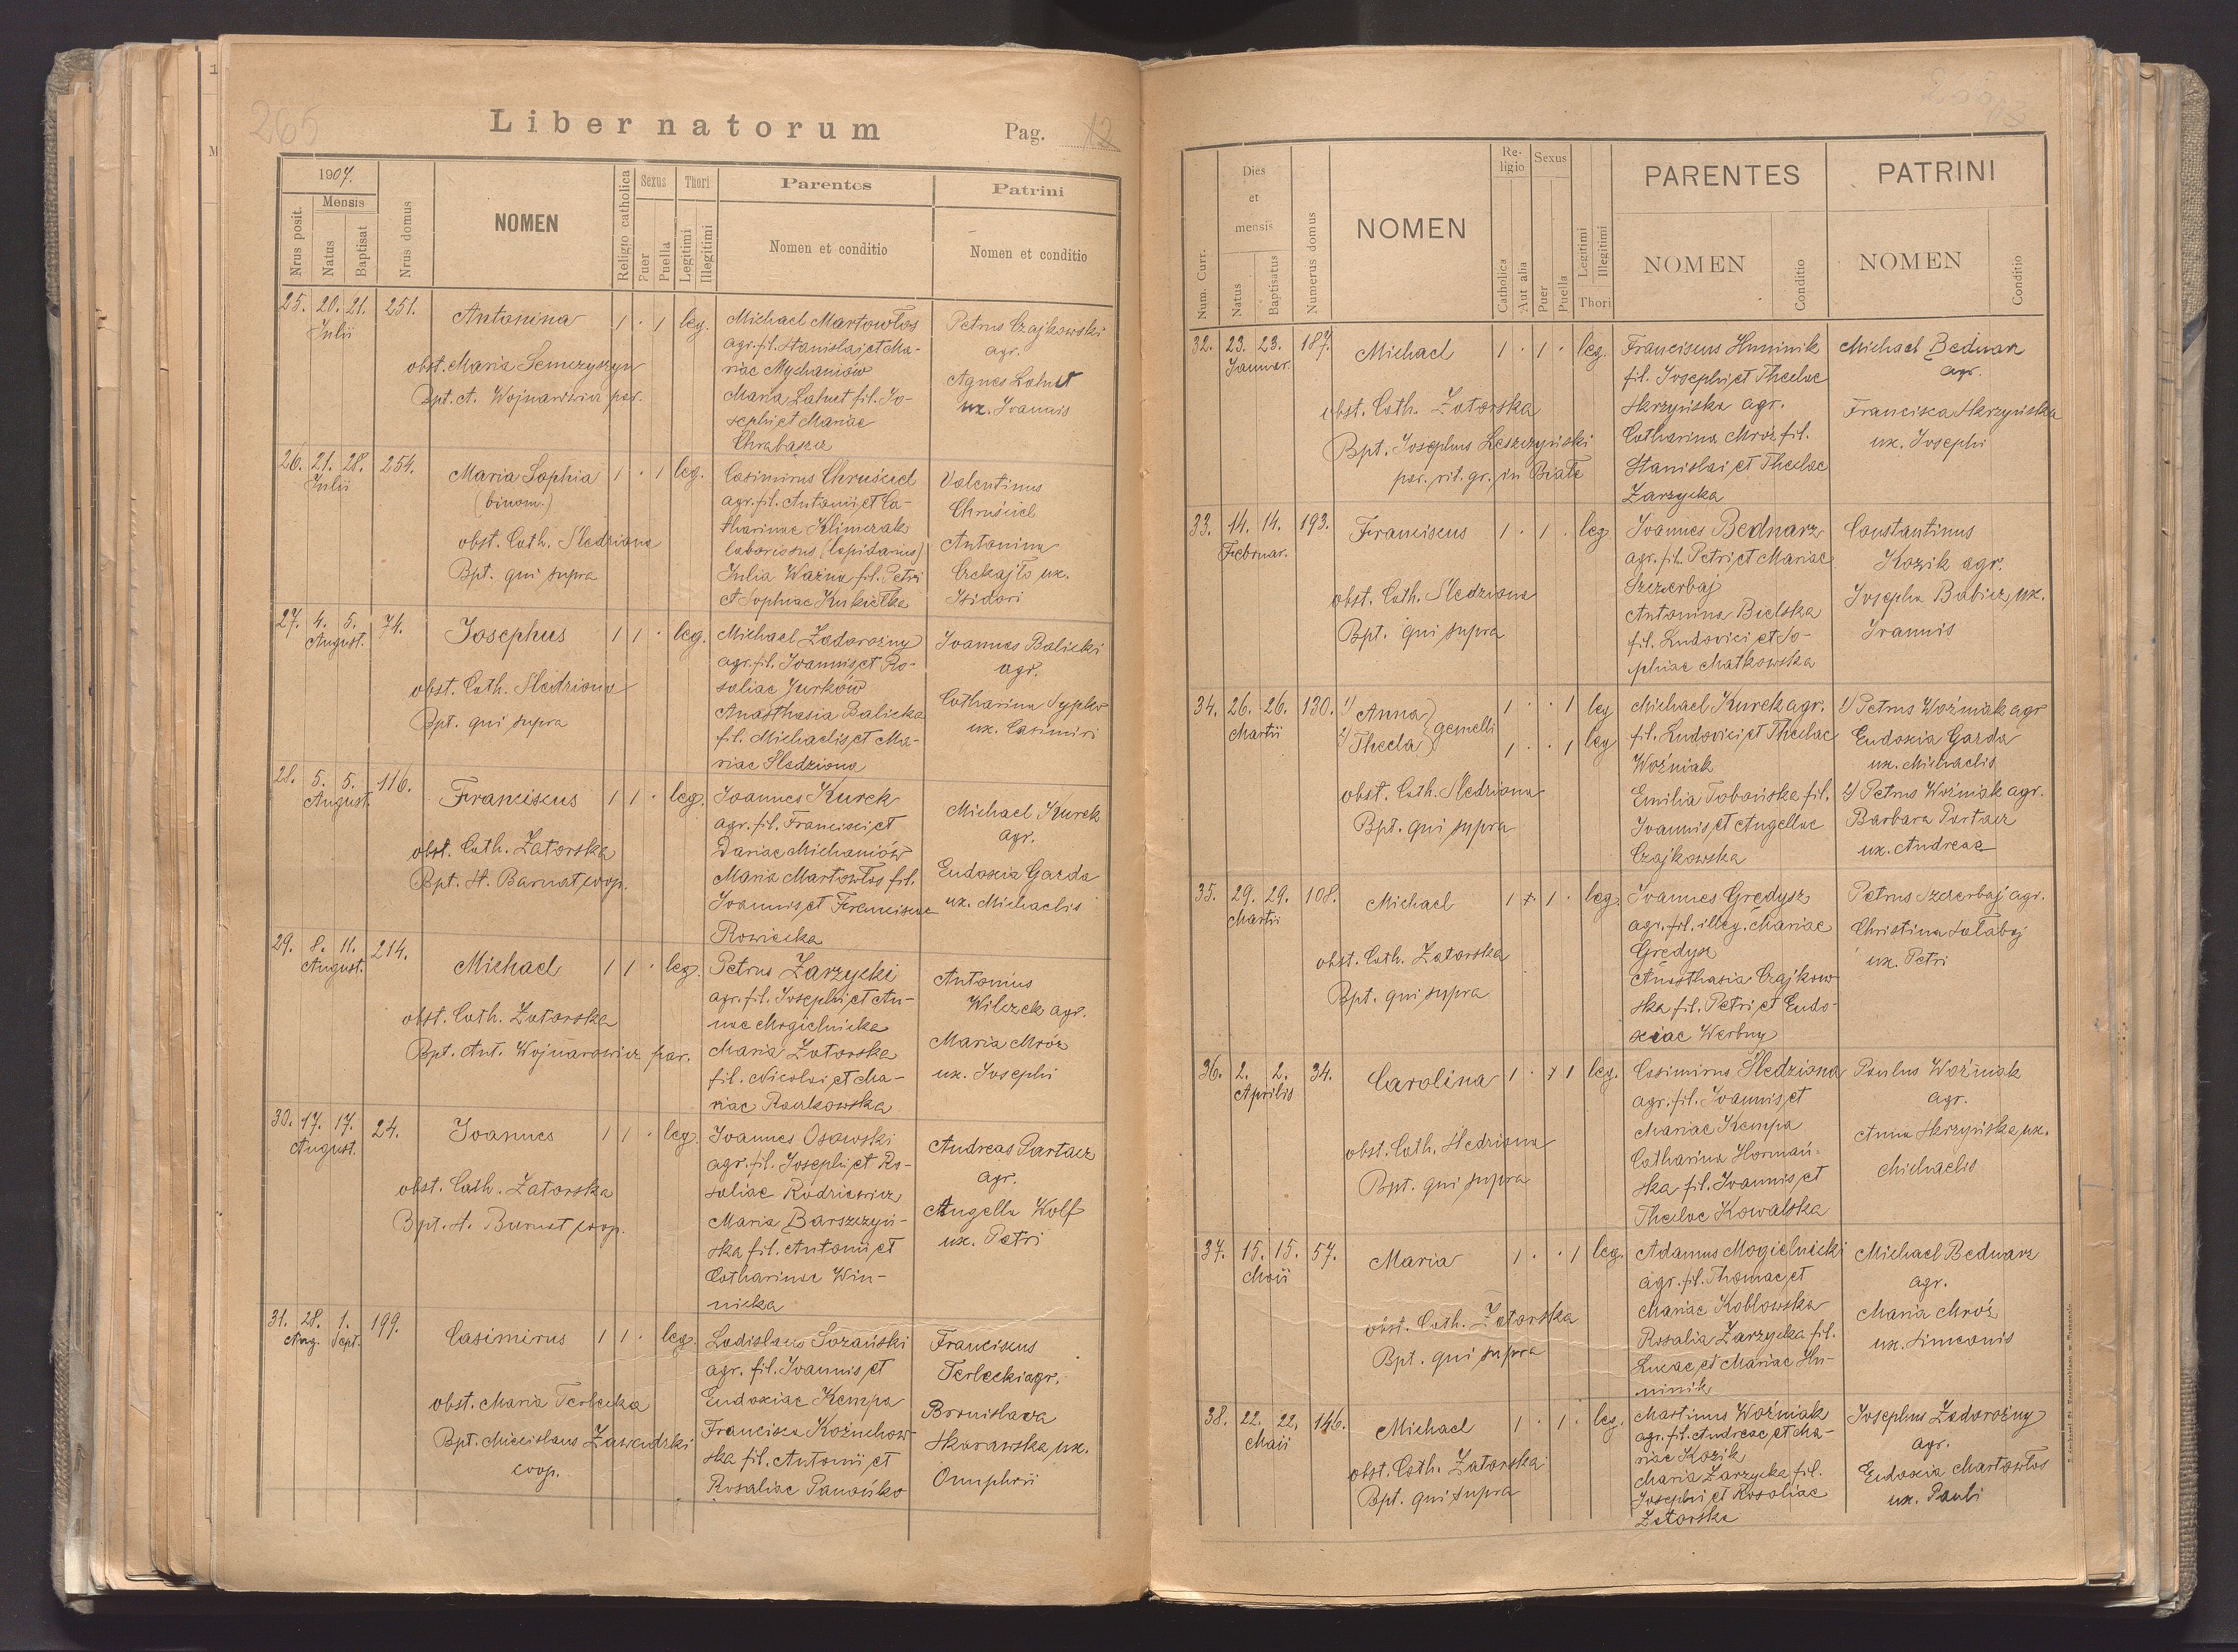 265
Liber natorum
Pag. 12
1907.
Nrus posit.
Mensis
Natus
Baptisat
Nrus domus
NOMEN
Religio catholica
Sexus
Puer
Puella
Thori
Legitimi
Illegitimi
Parentes
Nomen et conditio
Patrini
Nomen et conditio
25. 20. 21. 251. Antonina 1 . 1 leg.
Julii
obst. Maria Semczyszyn
Bpt. A. Wojnarowicz par.
Michael Martowłos
agr. fil. Stanislai et Ma-
riae Mychaniów
Maria Łahut fil. Jo-
sephi et Mariae
Chrabąszcz
Petrus Czajkowski
agr.
Agnes Łahut
ux. Joannis
26. 21. 28. 254. Maria Sophia 1 . 1 leg.
Julii
(binom.)
obst. Cath. Śledziona
Bpt. qui supra
Casimirus Chruściel
agr. fil. Antonii et Ca-
tharinae Klimczak
laboriosus (lapidarius)
Julia Ważna fil. Petri
et Sophiae Kukiełka
Valentinus
Chruściel
Antonina
Czekajło ux.
Isidori
27. 4. 5. 74. Josephus 1 1 . leg.
August.
obst. Cath. Śledziona
Bpt. qui supra
Michael Zadorożny
agr. fil. Joannis et Ro-
saliae Jurków
Anasthasia Balicka
fil. Michaelis et Ma-
riae Śledziona
Joannes Balicki
agr.
Catharina Sypko
ux. Casimiri
28. 5. 5. 116. Franciscus 1 1 . leg.
August.
obst. Cath. Zatorska
Bpt. A. Barnat coop.
Joannes Kurek
agr. fil. Francisci et
Dariae Michaniów
Maria Martowłos fil.
Joannis et Franciscae
Rowicka
Michael Kurek
agr.
Eudoxia Garda
ux. Michaelis
29. 8. 11. 214. Michael 1 1 . leg.
August.
obst. Cath. Zatorska
Bpt. Ant. Wojnarowicz par.
Petrus Zarzycki
agr. fil. Josephi et An-
nae Mogielnicka
Maria Zatorska
fil. Nicolai et Ma-
riae Raczkowska
Antonius
Wilczek agr.
Maria Mróz
ux. Josephi
30. 17. 17. 24. Joannes 1 1 . leg.
August.
obst. Cath. Zatorska
Bpt. A. Barnat coop.
Joannes Osowski
agr. fil. Josephi et Ro-
saliae Rodziewicz
Maria Barszczyń-
ska fil. Antonii et
Catharinae Win-
nicka
Andreas Partacz
agr.
Angella Wolf
ux. Petri
31. 28. 1. 199. Casimirus 1 1 . leg.
Aug. Sept.
obst. Maria Terlecka
Bpt. Miecislaus Zawadzki
coop.
Ladislaus Sozański
agr. fil. Joannis et
Eudoxiae Kempa
Francisca Kożuchow-
ska fil. Antonii et
Rosaliae Panońko
Franciscus
Terlecki agr.
Bronislava
Skarawska ux.
Onuphrii
Num. Curr.
Dies
et
mensis
Natus
Baptisatus
Numerus domus
NOMEN
Re-
ligio
Catholica
Aut alia
Sexus
Puer
Puella
Legitimi
Illegitimi
Thori
PARENTES
NOMEN
Conditio
PATRINI
NOMEN
Conditio
32. 23. 23. 187. Michael 1 . 1 . leg.
Januar.
obst. Cath. Zatorska
Bpt. Josephus Leszczyński
par. rit. gr. in Biała
Franciscus Huminik
fil. Josephi et Theclae
Skrzyńska agr.
Catharina Mróz fil.
Stanislai et Theclae
Zarzycka
Michael Bednarz
agr.
Francisca Skrzyńska
ux. Josephi
33. 14. 14. 193. Franciscus 1 . 1 . leg
Februar.
obst. Cath. Śledziona
Bpt. qui supra
Joannes Bednarz
agr. fil. Petri et Mariae
Szczerbaj
Antonina Bielska
fil. Ludovici et So-
phiae Matkowska
Constantinus
Kozik agr.
Josepha Babicz, ux.
Joannis
34. 26. 26. 130. 1) Anna 1 . . 1 leg
Martii
2) Thecla gemelli 1 . . 1 leg
obst. Cath. Śledziona
Bpt. qui supra
Michael Kurek agr.
fil. Ludovici et Theclae
Woźniak
Emilia Tobońska fil.
Joannis et Angellae
Czajkowska
1) Petrus Woźniak agr
Eudoxia Garda
ux. Michaelis
2) Petrus Woźniak agr.
Barbara Partacz
ux. Andreae
35. 29. 29. 108. Michael 1 . 1 . leg.
Martii
obst. Cath. Zatorska
Bpt. qui supra
Joannes Grędysz
agr. fil. illeg. Mariae
Grędysz
Anasthasia Czajkow-
ska fil. Petri et Eudo-
xiae Werbny
Petrus Szczerbaj agr.
Christina Sałabaj
ux. Petri
36. 2. 2. 34. Carolina 1 . . 1 leg.
Aprilis
obst. Cath. Śledziona
Bpt. qui supra
Casimirus Śledziona
agr. fil. Joannis et
Mariae Kempa
Catharina Hormań-
ska fil. Joannis et
Theclae Kowalska
Paulus Woźniak
agr.
Anna Skrzyńska, ux.
Michaelis
37. 15. 15. 57. Maria 1 . . 1 leg.
Maii
obst. Cath. Zatorska
Bpt. qui supra
Adamus Mogielnicki
agr. fil. Thomae et
Mariae Kobłowska
Rosalia Zarzycka fil.
Lucae et Mariae Hu-
minik
Michael Bednarz
agr.
Maria Mróz
ux. Simeonis
38. 22. 22. 146. Michael 1 . 1 . leg.
Maii
obst. Cath. Zatorska
Bpt. qui supra
Martinus Woźniak
agr. fil. Andreae et Ma-
riae Kozik
Maria Zarzycka fil.
Josephi et Rosaliae
Zatorska
Josephus Zadorożny
agr.
Eudoxia Martowłos
ux. Pauli